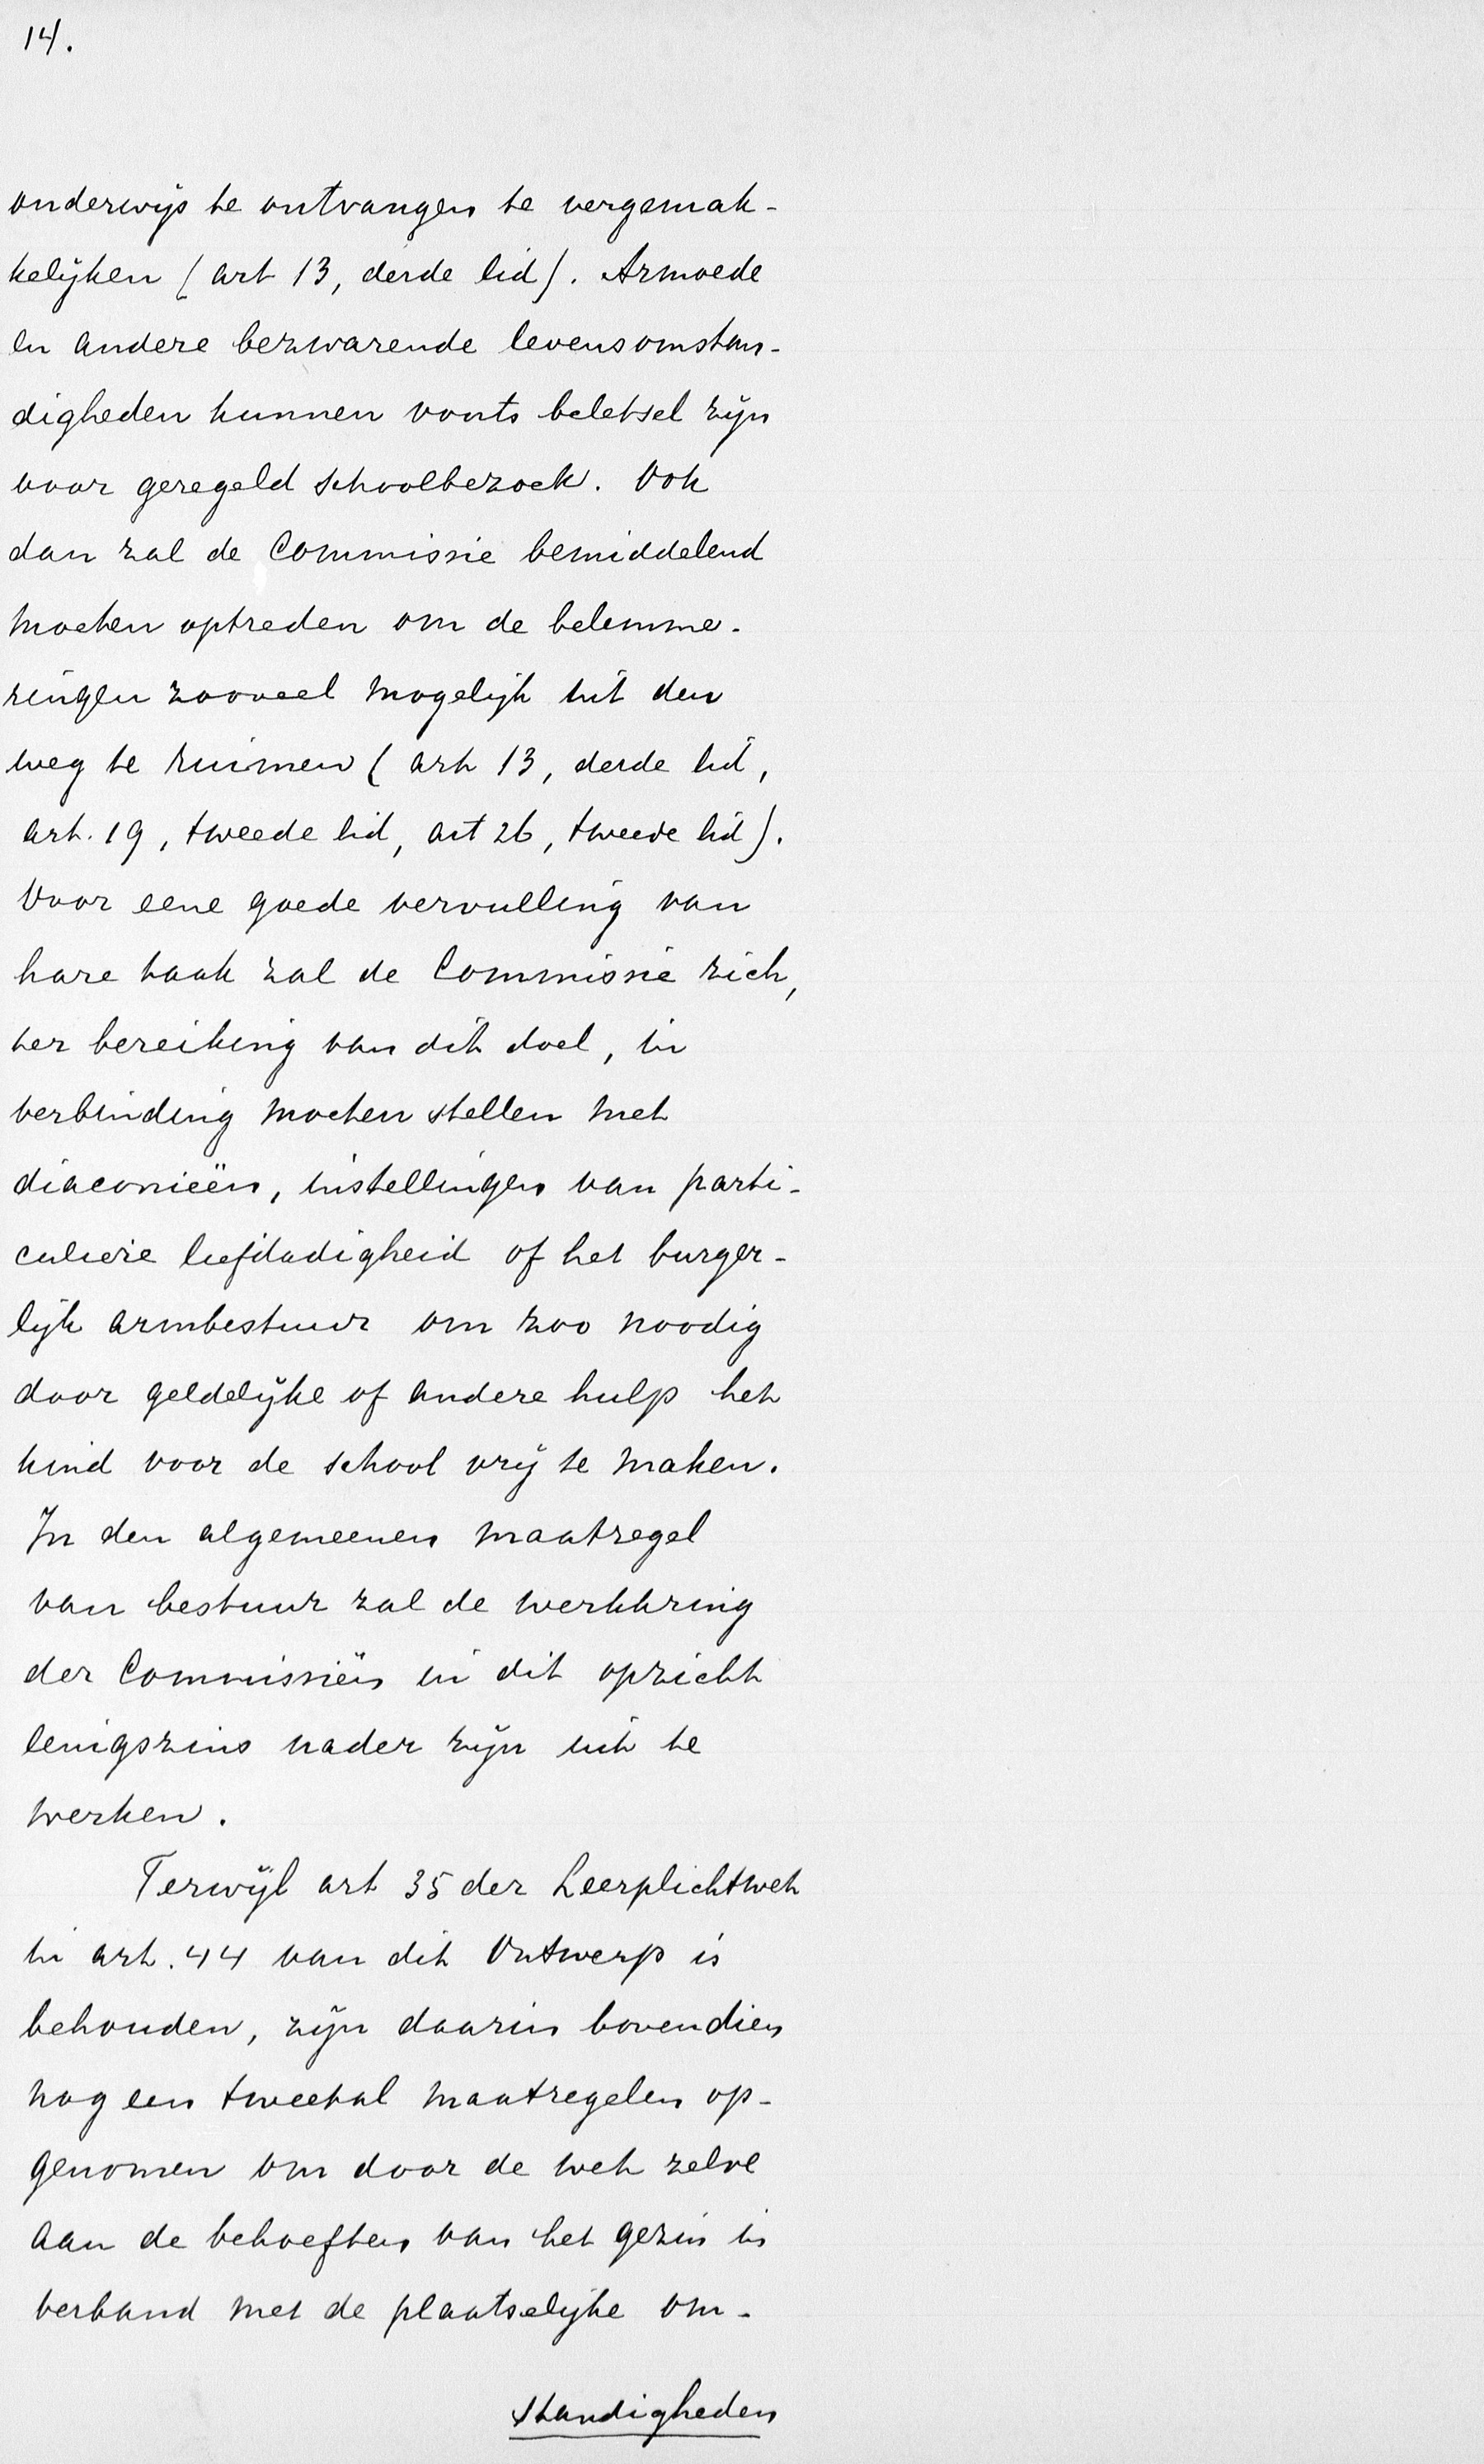 14.
onderwijs te ontvangen te vergemak-
kelijken (art 13, derde lid). Armoede
en andere bezwarende levensomstan-
digheden kunnen voorts beletsel zijn
voor geregeld schoolbezoek. Ook
dan zal de Commissie bemiddelend
moeten optreden om de belemme-
ringen zooveel mogelijk uit den
weg te ruimen (art 13, derde lid,
art. 19, tweede lid, art 26, tweede lid).
Voor eene goede vervulling van
hare taak zal de Commissie zich,
ter bereiking van dit doel, in
verbinding moeten stellen met
diaconieën, instellingen van parti-
culiere liefdadigheid of het burger-
lijk armbestuur om zoo noodig
door geldelijke of andere hulp het
kind voor de school vrij te maken.
In den algemeenen maatregel
van bestuur zal de werkkring
der Commissiën in dit opzicht
eenigszins nader zijn uit te
werken.
Terwijl art 35 der Leerplichtwet
in art. 44 van dit Ontwerp is
behouden, zijn daarin bovendien
nog een tweetal maatregelen op-
genomen om door de wet zelve
aan de behoeften van het gezin in
verband met de plaatselijke om-
standigheden